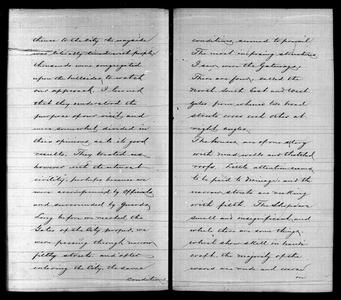 thence to the City the wayside
was literally lined with people
thousands were congregated
upon the hillsides, to watch
our approach. I learned
that they understood the
purpose of our visit, and
were somewhat divided in
their opinions, as to its good
results. They treated us,
however with the utmost
civility; perhaps because we
were accompanied by Officials,
and surrounded by Guards.
Long before we reached the
Gates of the City proper, we
were passing through narrow
filthy streets, and after
entering the City, the same
conditions
conditions, seemed to prevail.
The most imposing structures
I saw, were the Gateways.
There are four, called the
North, South East and West
Gates from whence two broad
streets cross each other at
right angles.
The houses, are of one story
with mud walls and thatched
roofs. Little attention seems
to be paid to drainage and the
narrow streets are reeking
with filth. The Shops are
small and insignificant, and
while there are some things,
which show skill in handi-
craft, the majority of the
wares are rude and